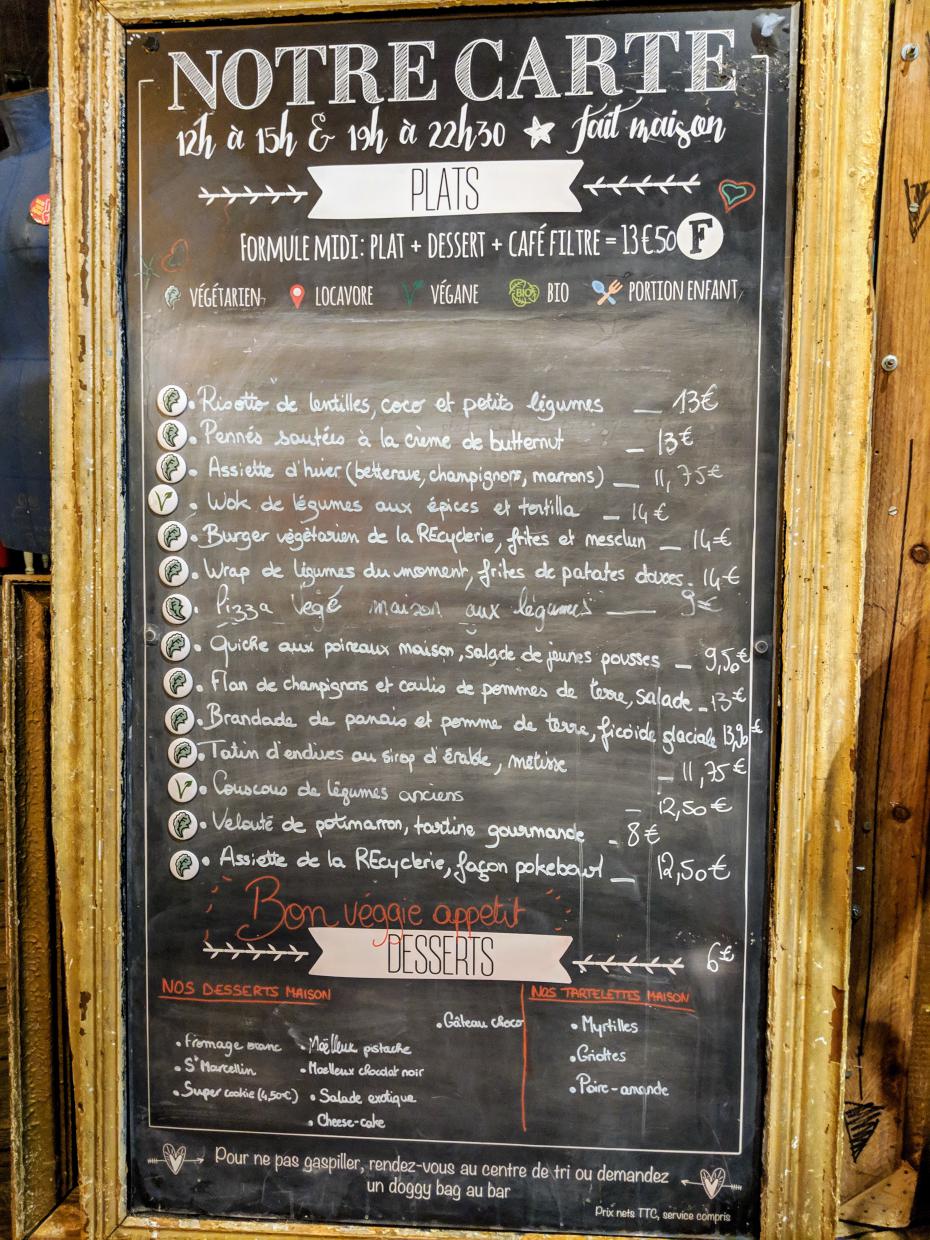 NOTRE CARTE
12h à 15h & 19h à 22h30 ★ fait maison
PLATS
FORMULE MIDI: PLAT + DESSERT + CAFÉ FILTRE = 13€50 F
VÉGÉTARIEN LOCAVORE VÉGANE BIO PORTION ENFANT
• Risotto de lentilles, coco et petits légumes — 13€
• Pennés sautées à la crème de butternut — 13€
• Assiette d'hiver (betterave, champignons, marrons) — 11,75€
• Wok de légumes aux épices et tortilla — 14€
• Burger végétarien de la REcyclerie, frites et mesclun — 14€
• Wrap de légumes du moment, frites de patates douces - 14€
• Pizza végé maison aux légumes — 9€
• Quiche aux poireaux maison, salade de jeunes pousses — 9,50€
• Flan de champignons et coulis de pommes de terre, salade - 13€
• Brandade de panais et pomme de terre, ficoïde glaciale 13,90€
• Tatin d'endives au sirop d'érable, métisse — 11,75€
• Couscous de légumes anciens — 12,50€
• Velouté de potimarron, tartine gourmande - 8€
• Assiette de la REcyclerie, façon pokebowl — 12,50€
Bon véggie appetit
DESSERTS 6€
NOS DESSERTS MAISON
• Gâteau choco
• Fromage blanc • Moëlleux pistache
• St Marcellin • Moelleux chocolat noir
• Super cookie (4,50€) • Salade exotique
• Cheese-cake
NOS TARTELETTES MAISON
• Myrtilles
• Griottes
• Poire-amande
Pour ne pas gaspiller, rendez-vous au centre de tri ou demandez
un doggy bag au bar
Prix nets TTC, service compris